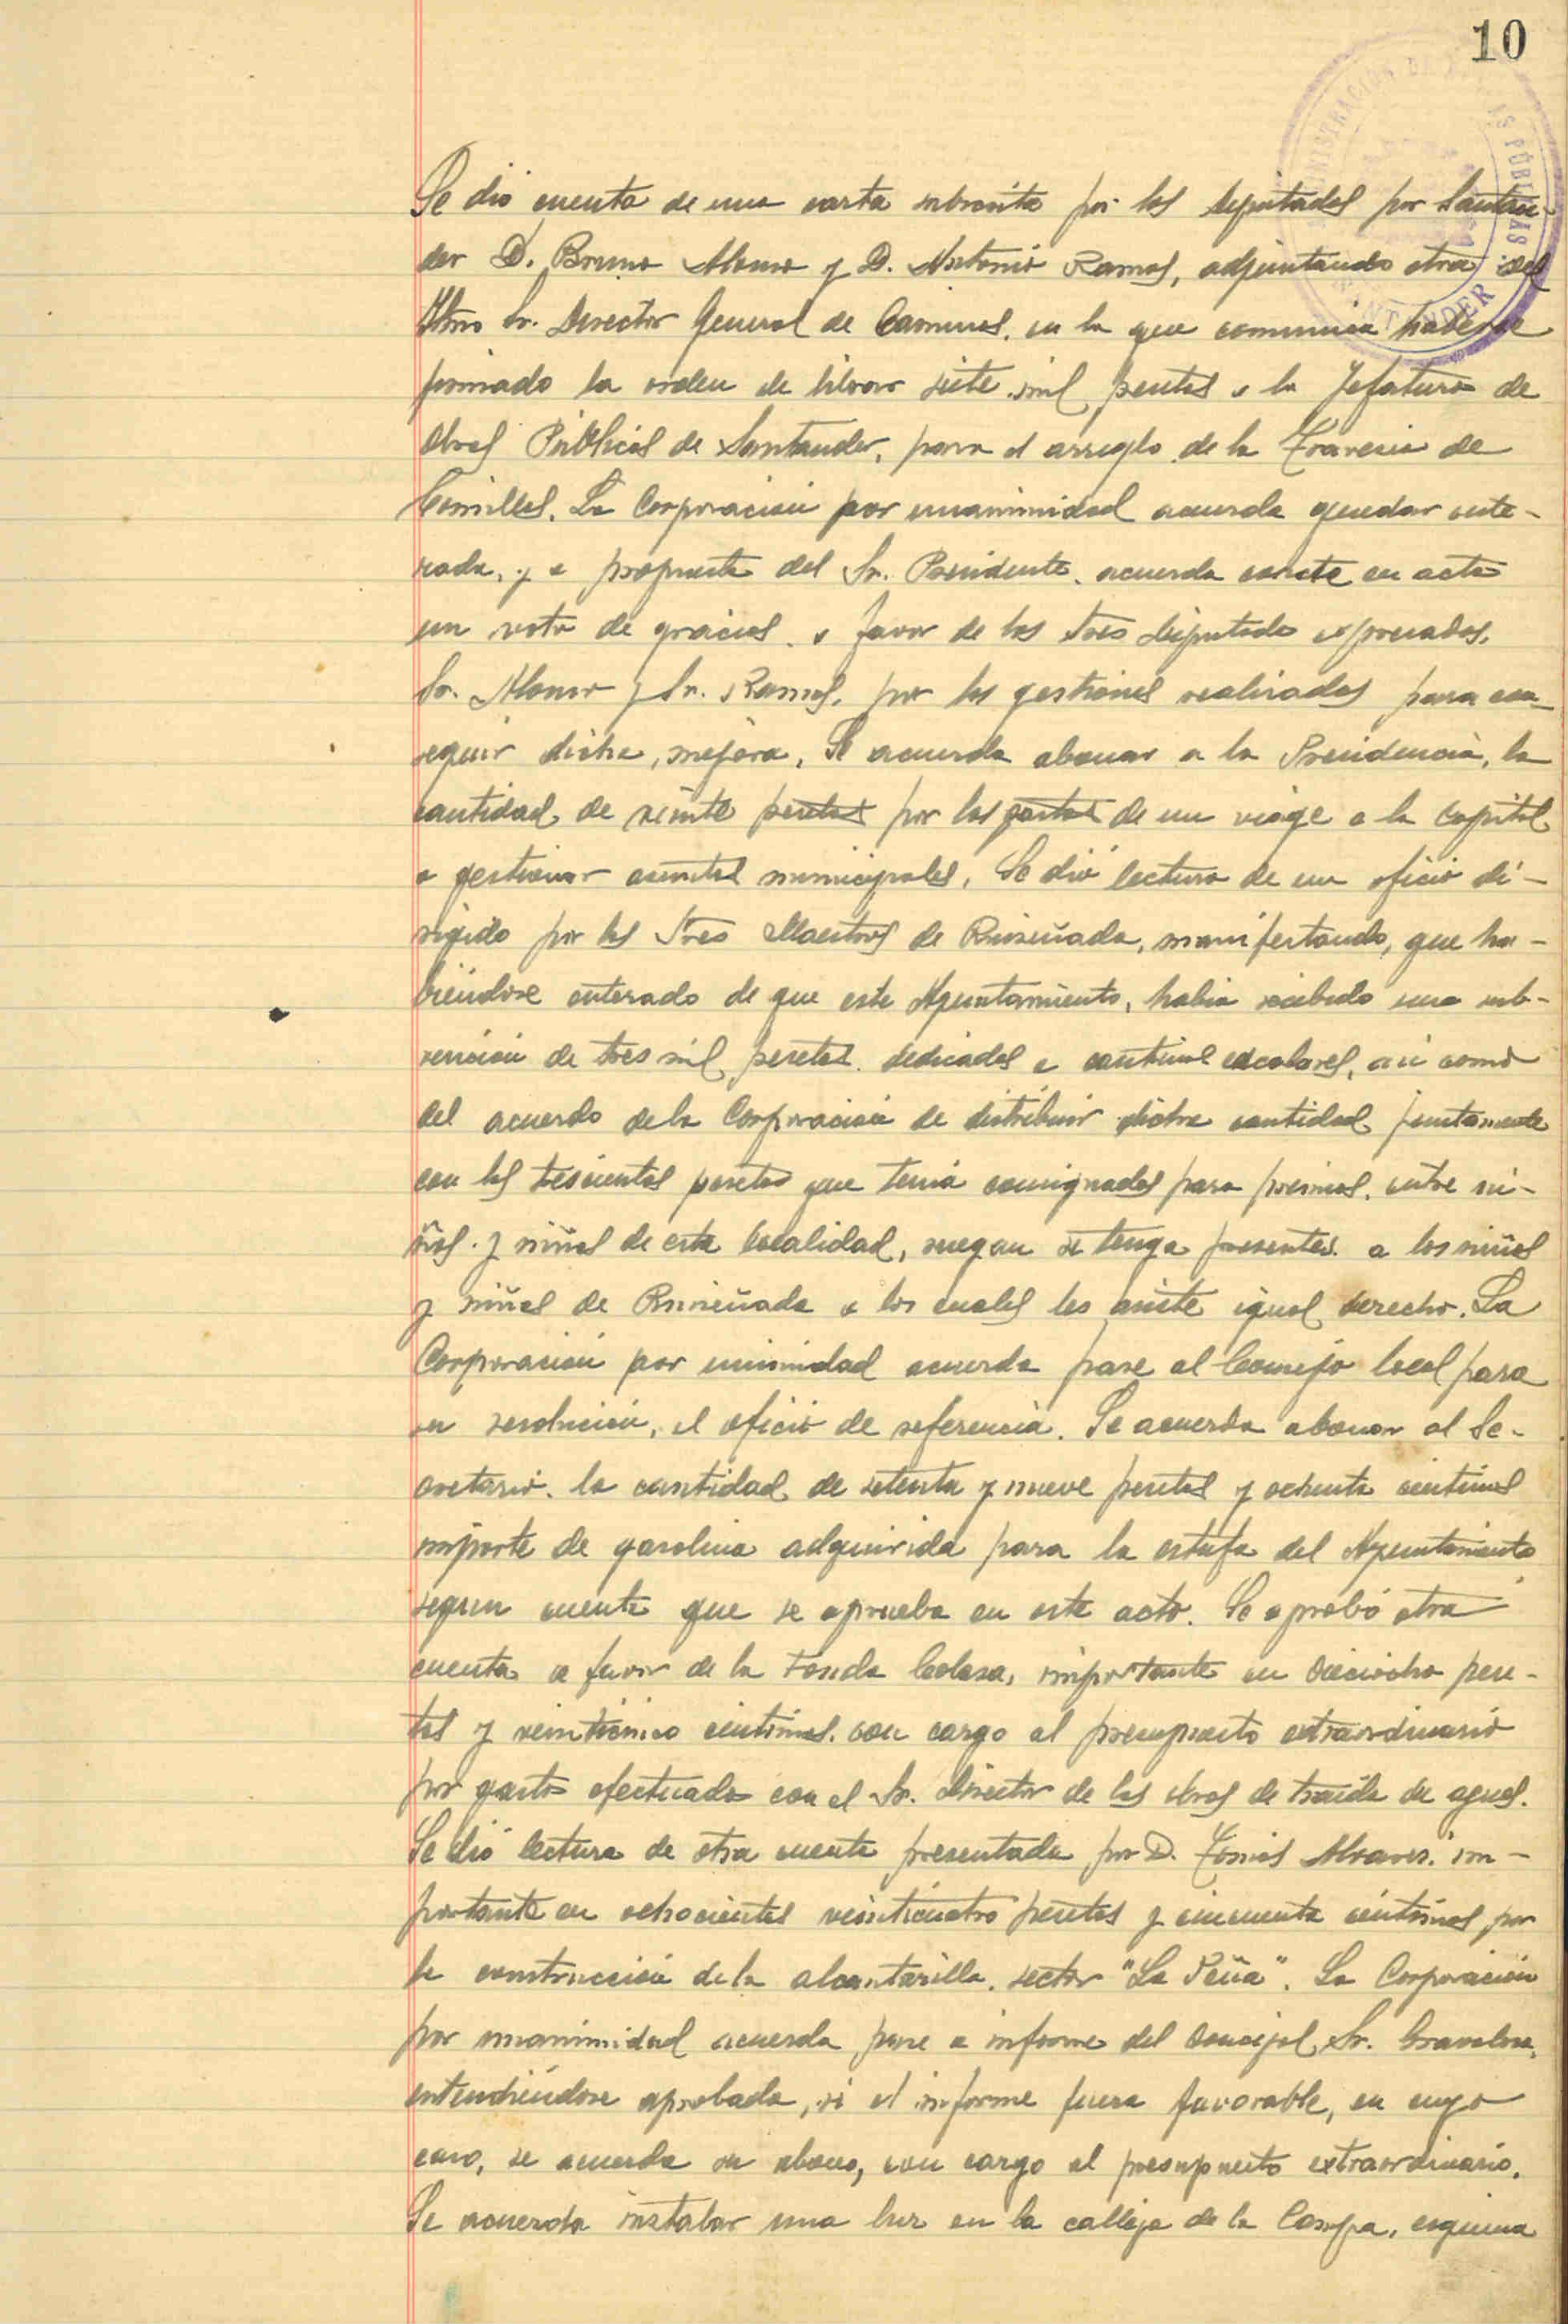 10
ADMINISTRACIÓN DE PÚBLICAS SANTANDER
Se dió cuenta de una carta subscrita por los diputados por Santan-
der D. Bruno Alonso y D. Antonio Ramos, adjuntando otra del
Iltmo Sr. Director General de Caminos, en la que comunica haberse
firmado la orden de librar siete mil pesetas a la Jefatura de
Obras Públicas de Santander, para el arreglo de la Travesia de
Comillas. La Corporación por unanimidad acuerda quedar ente-
rada, y a propuesta del Sr. Presidente, acuerda conste en acta
un voto de gracias a favor de los Sres diputado expresados,
Sr. Alonso y Sr. Ramos, por las gestiones realizadas para con-
seguir dicha mejora. Se acuerda abonar a la Presidencia, la
cantidad de veinte pesetas por los gastos de un viage a la Capital
a gestionar asuntos municipales. Se dió lectura de un oficio di-
rigido por los Sres Maestros de Ruiseñada, manifestando, que ha-
biendose enterado de que este Ayuntamiento, habia recibido una sub-
vención de tres mil pesetas dedicadas a cantinas escolares, asi como
del acuerdo de la Corporación de distribuir dicha cantidad juntamente
con las pesetas que tenia consignadas para premios, entre ni-
ños y niñas de esta localidad, ruegan se tenga presentes a los niños
y niñas de Ruiseñada a los cuales les asiste igual derecho. La
Corporación por acuerda pase al Consejo local para
su resolución, el oficio de referencia. Se acuerda abonar al Se-
cretario, la cantidad de setenta y nueve pesetas y ochenta centimos
importe de gasolina adquirida para la estufa del Ayuntamiento
segun cuenta que se aprueba en este acto. Se aprobó otra
cuenta a favor de la Fonda Colasa, importante en dieciocho pese-
tas y veinticinco centimos, con cargo al presupuesto extraordinario
por gastos efectuados con el Sr. Director de las obras de traida de aguas.
Se dió lectura de otra cuenta presentada por D. Tomás Alvarez, im-
portante en ochocientas veinticuatro pesetas y cincuenta centimos, por
la construcción de la alcantarilla, sector "La Peña". La Corporación
por unanimidad acuerda pase a informe del Concejal Sr.
entendiéndose aprobada, si el informe fuera favorable, en cuyo
caso, se acuerda su abono, con cargo al presupuesto extraordinario.
Se acuerda instalar una luz en la calleja de la Campa, esquina